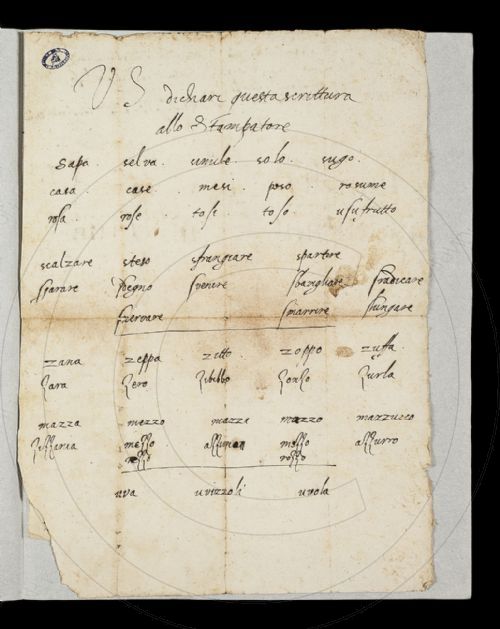 V S dichiari questa scrittura
allo Stampatore
sapa selva umile solo sugo
casa case mesi poso rosume
rosa rose tosi toso usufrutto
scalzare steso sfrangeare spartere
sparare svenire sbangliare
smarrire sfungare
zana zeppa zetto zoppo zuffa
zara zero zibibbo zonzo zurla
mazza mezzo mazzi mazzo mazzucco
zizzania mezzo mozzo azzurro
rozzo
uva uvizzoli uvola